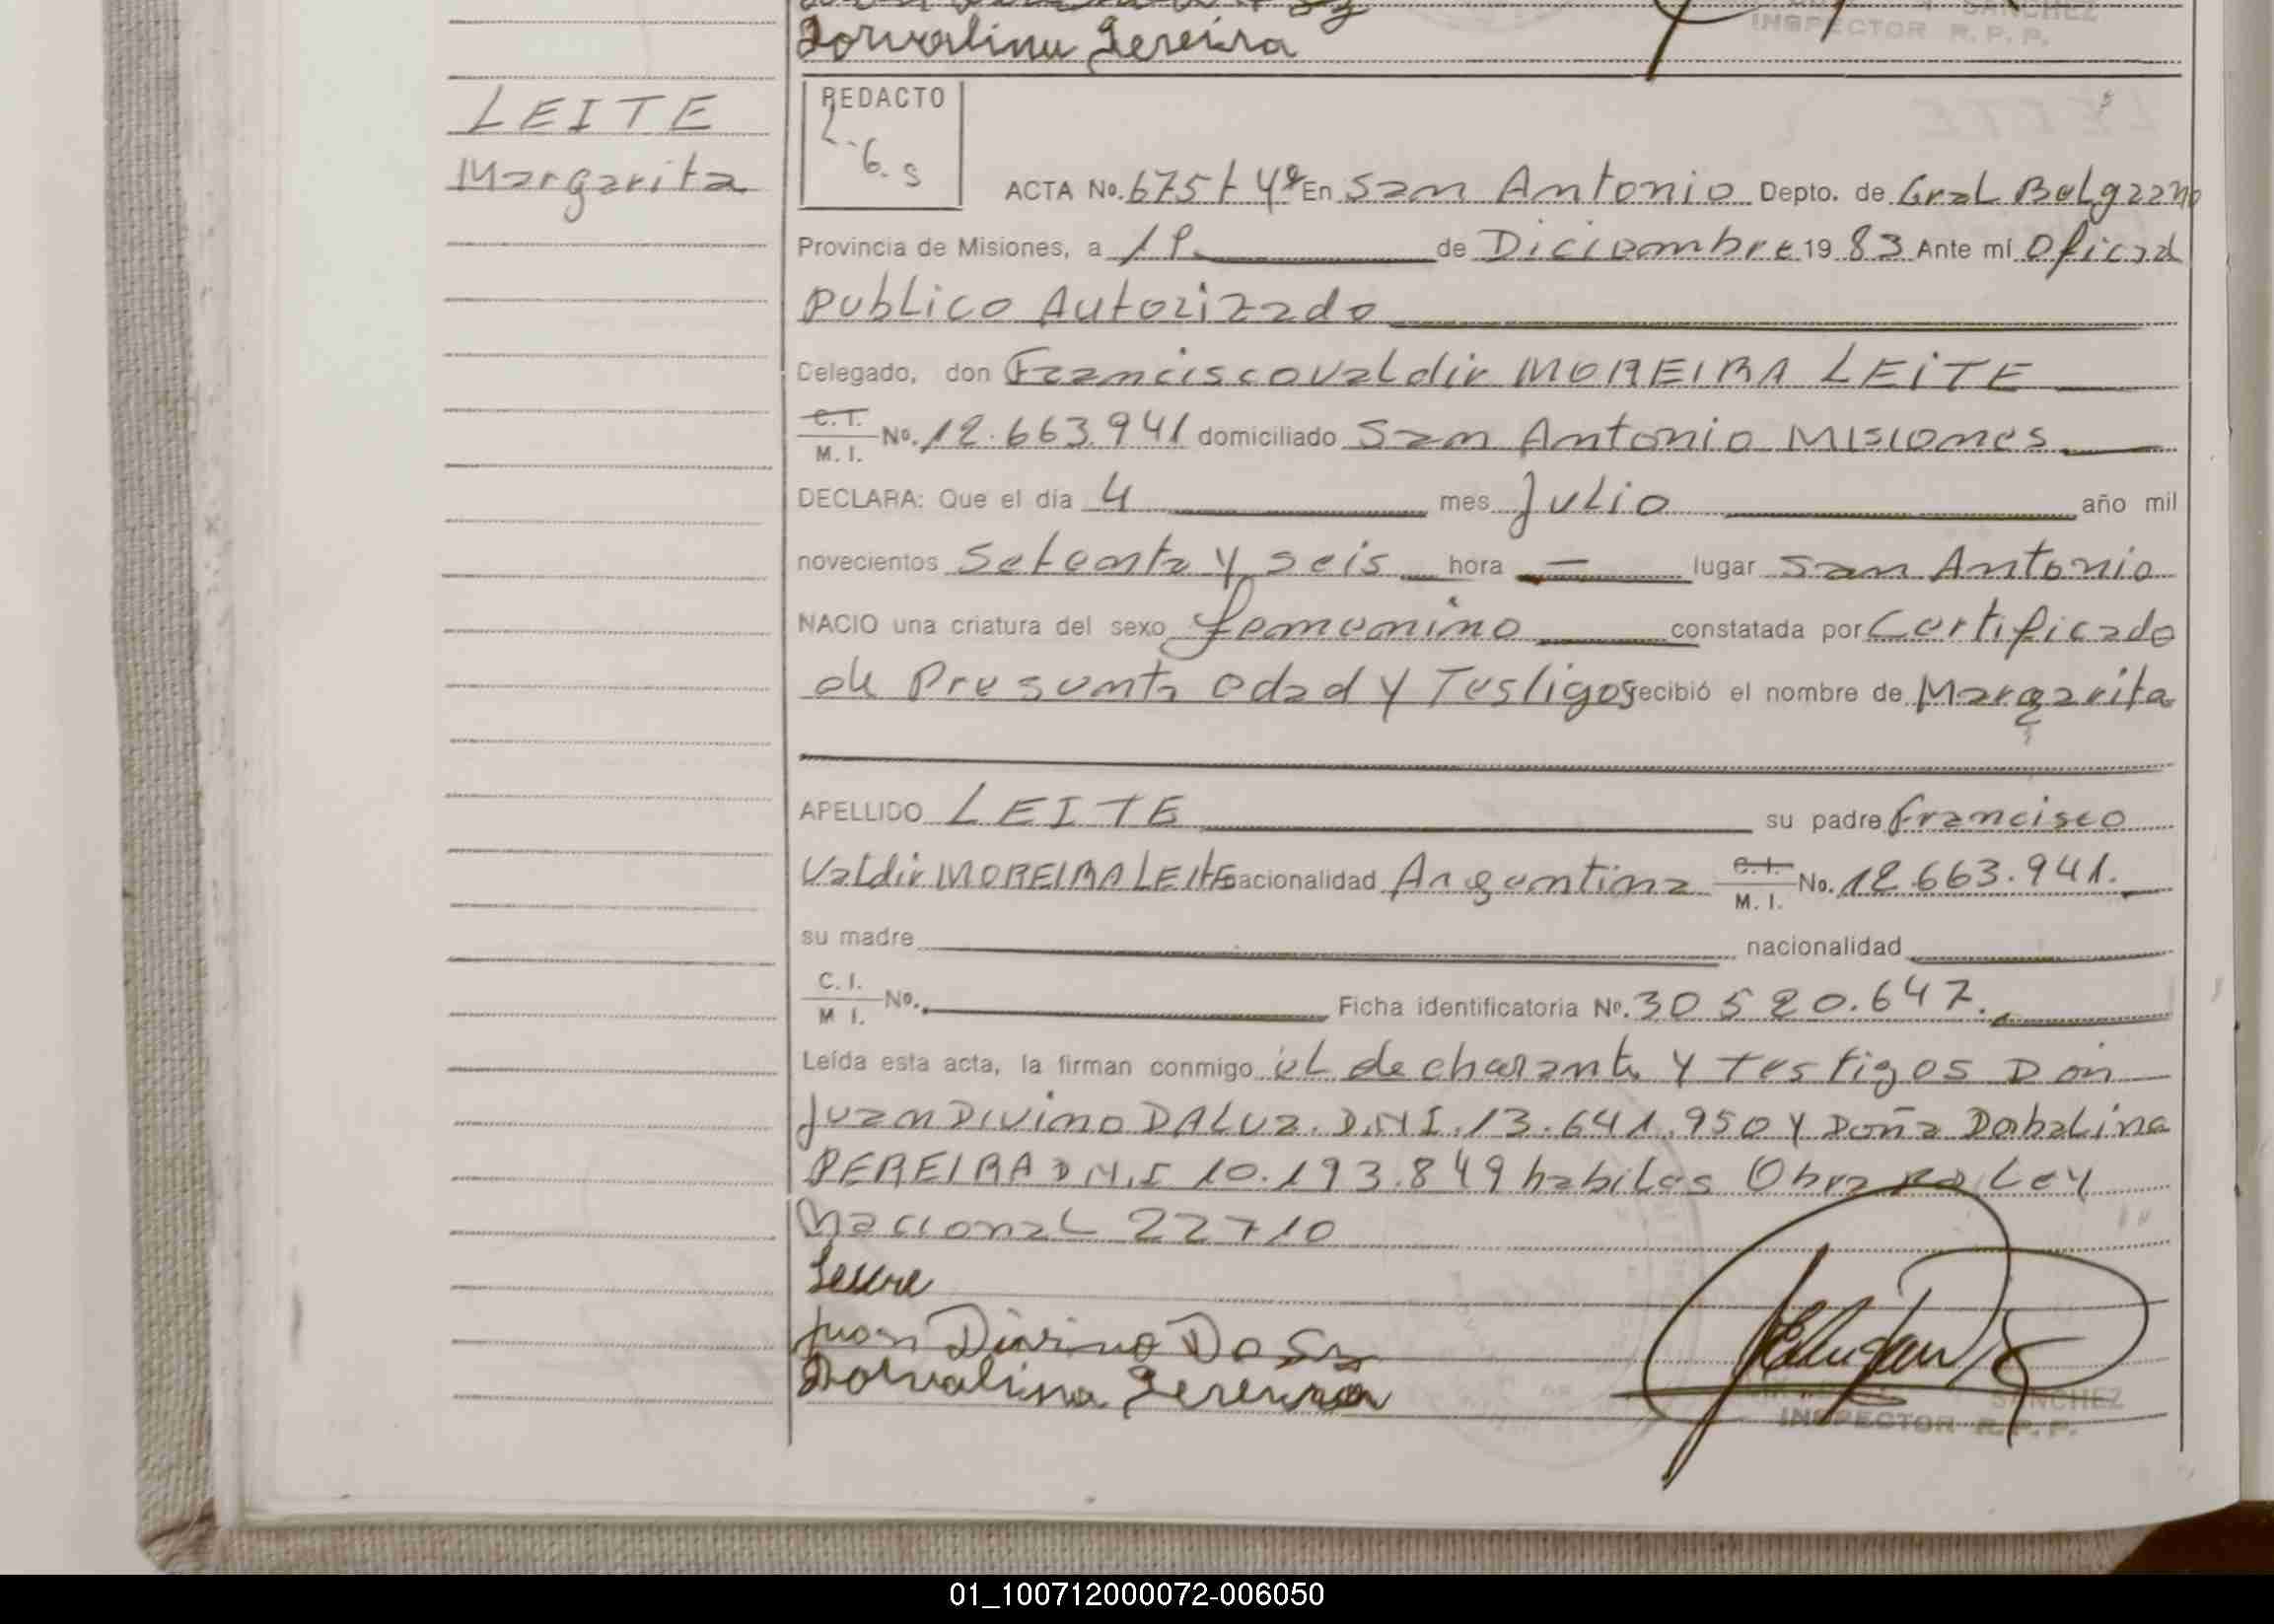 Dorvalina Pereira
INSPECTOR R. P. P.
LEITE
Margarita
REDACTO
6. s
ACTA No. 675 t 4º En San Antonio Depto. de Gral Belgrano
Provincia de Misiones, a 19 de Diciembre 19 83 Ante mí Oficial
Publico Autorizado
Delegado, don Francisco Valdir MOREIRA LEITE
C. I. M. I. No. 12.663.941 domiciliado San Antonio Misiones
DECLARA: Que el día 4 mes Julio año mil
novecientos Setenta y seis hora — lugar San Antonio
NACIO una criatura del sexo femenino constatada por Certificado
de Presunta edad y Testigos recibió el nombre de Margarita
APELLIDO LEITE su padre Francisco
Valdir MOREIRA LEITE nacionalidad Argentina C. I. M. I. No. 12.663.941.
su madre nacionalidad
C. I. M I. No. Ficha identificatoria No. 30 520.647.
Leída esta acta, la firman conmigo el declarante y Testigos Don
Juan Divino DALUZ. D.N.I. 13.641.950 y Doña Dobalina
PEREIRA D N.I 10.193.849 habiles Obra ro Ley
Nacional 22710
Juan Divino Da
Dorvalina Pereira
SANCHEZ
INSPECTOR R. P. P.
01_100712000072-006050